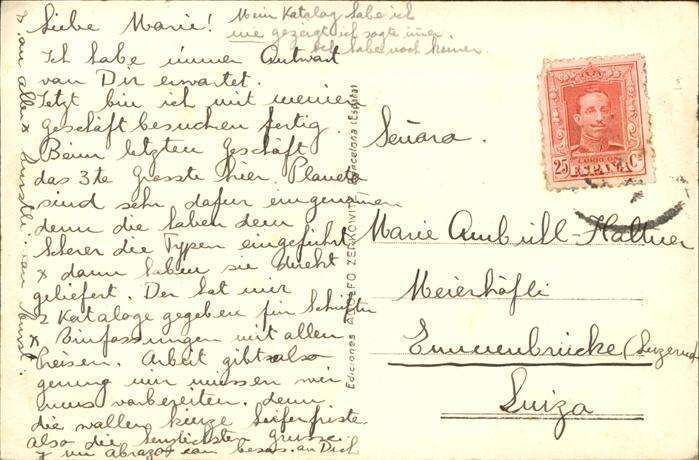 Liebe Marie!
Mein Katalog habe ich
nie gezeigt ich sagte imer.
ich habe noch keinen
Ich habe immer Antwort
von Dir erwartet.
Jetzt bin ich mit meinen
geschäft besuchen fertig.
Beim letzten Geschäft
das 3te Grosste hier. Planeta
sind sehr dafür eingenommen
denn die haben dem
Scherer die Typen eingeführt
x dann haben sie direkt
geliefert. Der hat mir
2 Kataloge gegeben für Schriften
x Einfassungen mit allen
Preisen. Arbeit gibts also
genung wir müssen wir
uns vorbereiten. denn
die wollen kurze Lieferfriste
also die Grüsse
y un abrazo con besos. an Dich
x an alle x
Ediciones ADOLFO ZERKOWITZ Barcelona (España)
25 Cs
CORREOS
ESPAÑA
Señora.
Marie Ambühl-Hallner
Meierhöfli
Emmenbrücke (Luzern)
Suiza